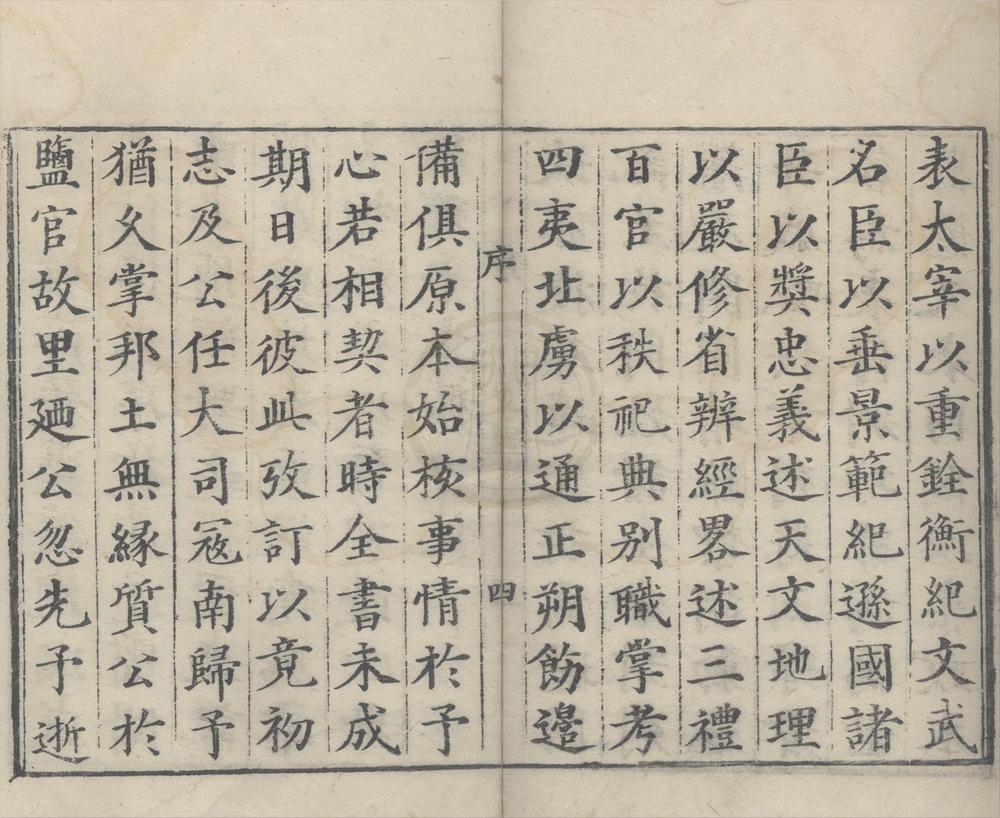 表太宰以重銓衡紀文武
名臣以垂景範紀遜國諸
臣以奬忠義述天文地理
以嚴修省辨經畧述三禮
百官以秩祀典别職掌考
四夷北虜以通正朔飭邊
序 四
備俱原本始核事情於予
心若相契者時全書未成
期日後彼此攷訂以竟初
志及公任大司冦南歸予
猶夊掌邦土無縁質公於
鹽官故里廼公忽先予逝